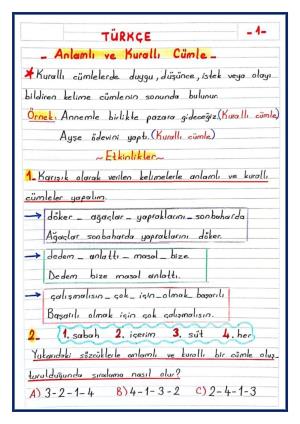 TÜRKÇE
-1-
- Anlamlı ve Kurallı Cümle -
* Kurallı cümlelerde duygu, düşünce, istek veya olayı
bildiren kelime cümlenin sonunda bulunur.
Örnek: Annemle birlikte pazara gideceğiz. (Kurallı cümle)
Ayşe ödevini yaptı. (Kurallı cümle)
~ Etkinlikler ~
1- Karışık olarak verilen kelimelerle anlamlı ve kurallı
cümleler yapalım.
→ döker - ağaçlar - yapraklarını - sonbaharda
Ağaçlar sonbaharda yapraklarını döker.
→ dedem - anlattı - masal - bize
Dedem bize masal anlattı.
→ çalışmalısın - çok - için - olmak - başarılı
Başarılı olmak için çok çalışmalısın.
2- 1. sabah 2. içerim 3. süt 4. her
Yukarıdaki sözcüklerle anlamlı ve kurallı bir cümle oluş-
turulduğunda sıralama nasıl olur?
A) 3-2-1-4 B) 4-1-3-2 C) 2-4-1-3